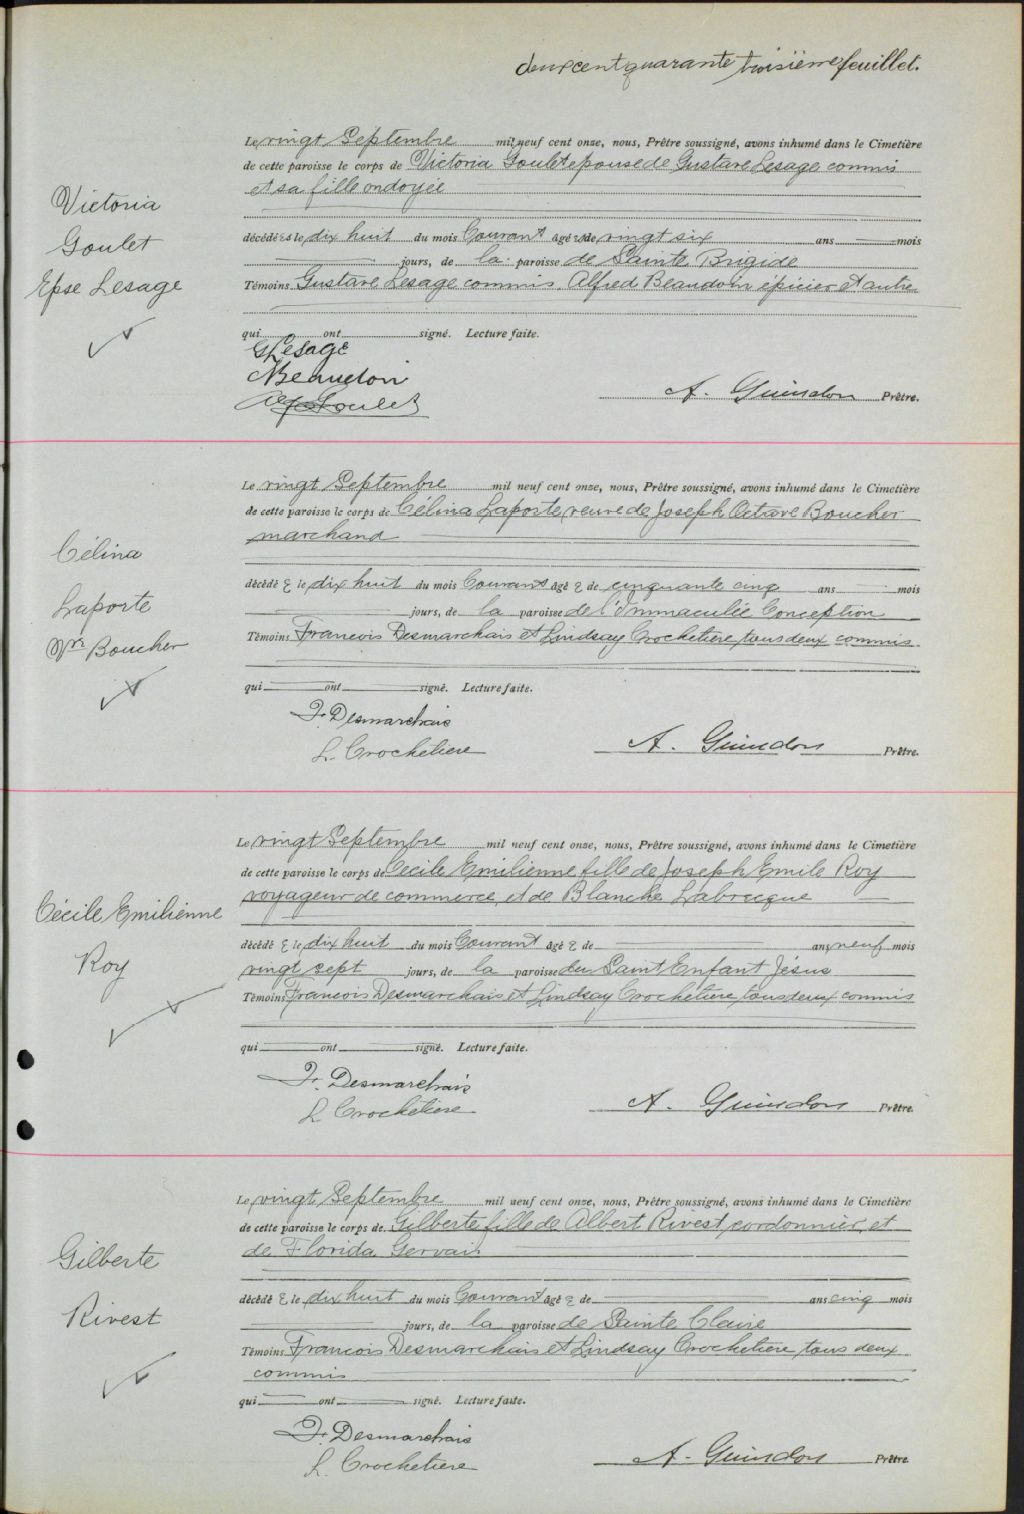 deux cent quarante troisième feuillet.
Le vingt Septembre mil neuf cent onze, nous, Prêtre soussigné, avons inhumé dans le Cimetière
de cette paroisse le corps de Victoria Goulet épouse de Gustave Lesage commis
et sa fille ondoyée
Victoria
Goulet
Epse Lesage
décédées le dix huit du mois Courant âgée de vingt six ans mois
jours, de la paroisse de Sainte Brigide
Témoins Gustave Lesage commis, Alfred Beaudoin épicier et autre
qui ont signé. Lecture faite.
G Lesage
A Beaudoin
Goulet
A. Guindon Prêtre.
Le vingt Septembre mil neuf cent onze, nous, Prêtre soussigné, avons inhumé dans le Cimetière
de cette paroisse le corps de Célina Laporte, veuve de Joseph Octave Boucher
marchand
Célina
Laporte
Vve Boucher
décédé e le dix huit du mois Courant âgé e de cinquante cinq ans mois
jours, de la paroisse de l'Immaculée Conception
Témoins Francois Desmarchais et Lindsay Crochetiere, tous deux commis
qui ont signé. Lecture faite.
F. Desmarchais
L. Crochetiere
A. Guindon Prêtre.
Le vingt Septembre mil neuf cent onze, nous, Prêtre soussigné, avons inhumé dans le Cimetière
de cette paroisse le corps de Cécile Emilienne fille de Joseph Emile Roy
voyageur de commerce, et de Blanche Labrecque
Cécile Emilienne
Roy
décédé e le dix huit du mois Courant âgé e de ans neuf mois
vingt sept jours, de la paroisse du Saint Enfant Jésus
Témoins Francois Desmarchais et Lindsay Crochetiere, tous deux commis
qui ont signé. Lecture faite.
F. Desmarchais
L. Crochetiere
A. Guindon Prêtre.
Le vingt Septembre mil neuf cent onze, nous, Prêtre soussigné, avons inhumé dans le Cimetière
de cette paroisse le corps de Gilberte fille de Albert Rivest, cordonnier, et
de Florida Gervais
Gilberte
Rivest
décédé e le dix huit du mois Courant âgé e de ans cinq mois
jours, de la paroisse de Sainte Claire
Témoins Francois Desmarchais et Lindsay Crochetiere, tous deux
commis
qui ont signé. Lecture faite.
F. Desmarchais
L. Crochetiere
A. Guindon Prêtre.